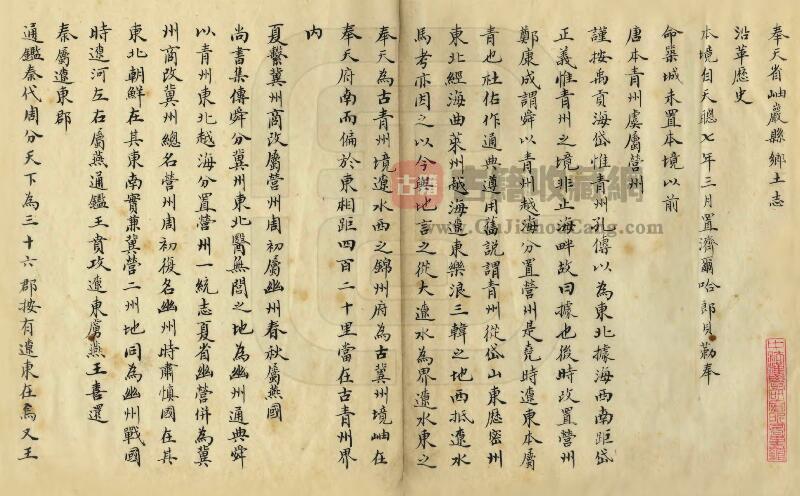 奉天省岫巖縣鄉土志
沿革歷史
本境自天聰七年三月置濟爾哈郎貝勒奉
命築城未置本境以前
唐本青州虞屬營州
謹按禹貢海岱惟青州孔傳以為東北據海西南距岱
正義惟青州之境非止海畔故曰據也後時改置營州
鄭康成謂舜以青州越海分置營州是堯時遼東本屬
青也杜佑作通典遵用舊說謂青州從岱山東歷密州
東北經海曲萊州越海遼東樂浪三韓之地西抵遼水
馬考亦因之以今輿地言之從大遼水為界遼水東之
奉天為古青州境遼水西之錦州府為古冀州境岫在
奉天府南而偏於東相距四百二十里當在古青州界
內
夏繫冀州商改屬營州周初屬幽州春秋屬燕國
尚書集傳舜分冀州東北醫無閭之地為幽州通典舜
以青州東北越海分置營州一統志夏省幽營併為冀
州商改冀州總名營州周初復名幽州時肅慎國在其
東北朝鮮在其東南實兼冀營二州地同為幽州戰國
時遼河左右屬燕通鑑王賁攻遼東虜燕王喜還
秦屬遼東郡
通鑑秦代周分天下為三十六郡按有遼東在焉又王
古籍收藏網
www.GuJiShouCang.com